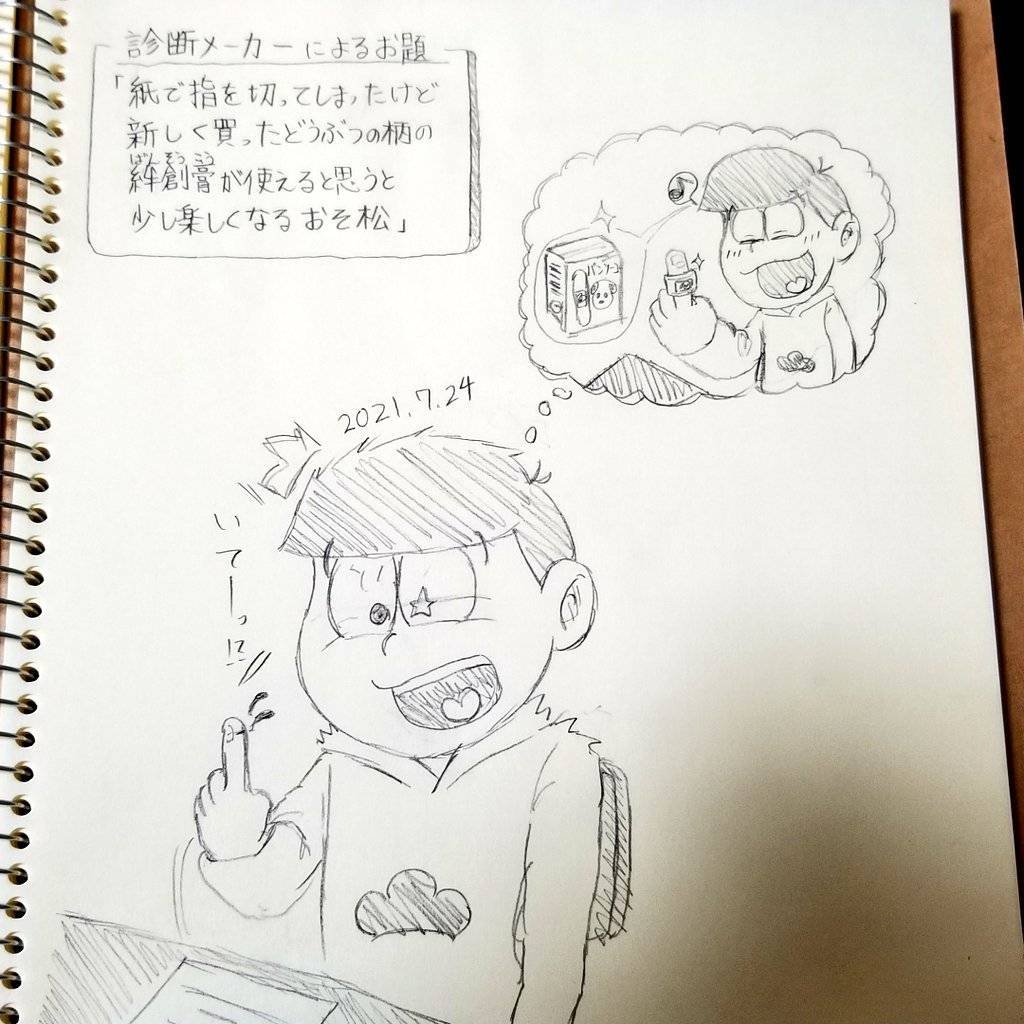 診断メーカーによるお題
「紙で指を切ってしまったけど
新しく買ったどうぶつの柄の
ばんそうこう
絆創膏が使えると思うと
少し楽しくなる おそ松」
2021.7.24
いてーっ!!